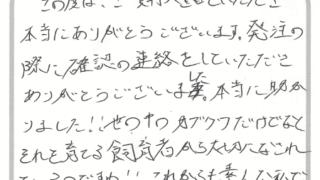 この度は、ご
本当にありがとうございます。発注の
際に確認の連絡をしていただき
ありがとうございました。本当に助か
りました!!世の中のカブクワだけでなく
それを育てる飼育者から大切にされ
ているのですね!!これからも素人な私